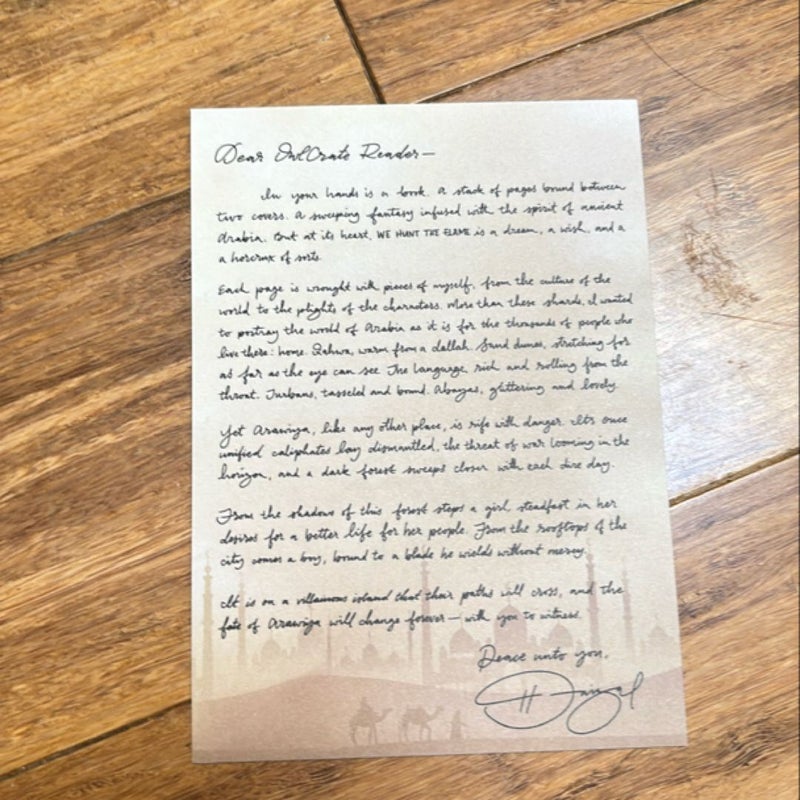 Dear OwlCrate Reader—
In your hands is a book. A stack of pages bound between
two covers. A sweeping fantasy infused with the spirit of ancient
Arabia. But at its heart, WE HUNT THE FLAME is a dream, a wish, and a
a horcrux of sorts.
Each page is wrought with pieces of myself, from the culture of the
world to the plights of the characters. More than these shards, I wanted
to portray the world of Arabia as it is for the thousands of people who
live there: home. Qahwa, warm from a dallah. Sand dunes, stretching far
as far as the eye can see. The language, rich and rolling from the
throat. Turbans, tasseled and bound. Abayas, glittering and lovely.
Yet Arawiya, like any other place, is rife with danger. Its once
unified caliphates lay dismantled, the threat of war looming in the
horizon, and a dark forest sweeps closer with each dire day.
From the shadows of this forest steps a girl steadfast in her
desires for a better life for her people. From the rooftops of the
city comes a boy, bound to a blade he wields without mercy.
It is on a villainous island that their paths will cross, and the
fate of Arawiya will change forever—with you to witness.
Peace unto you,
H Faizal